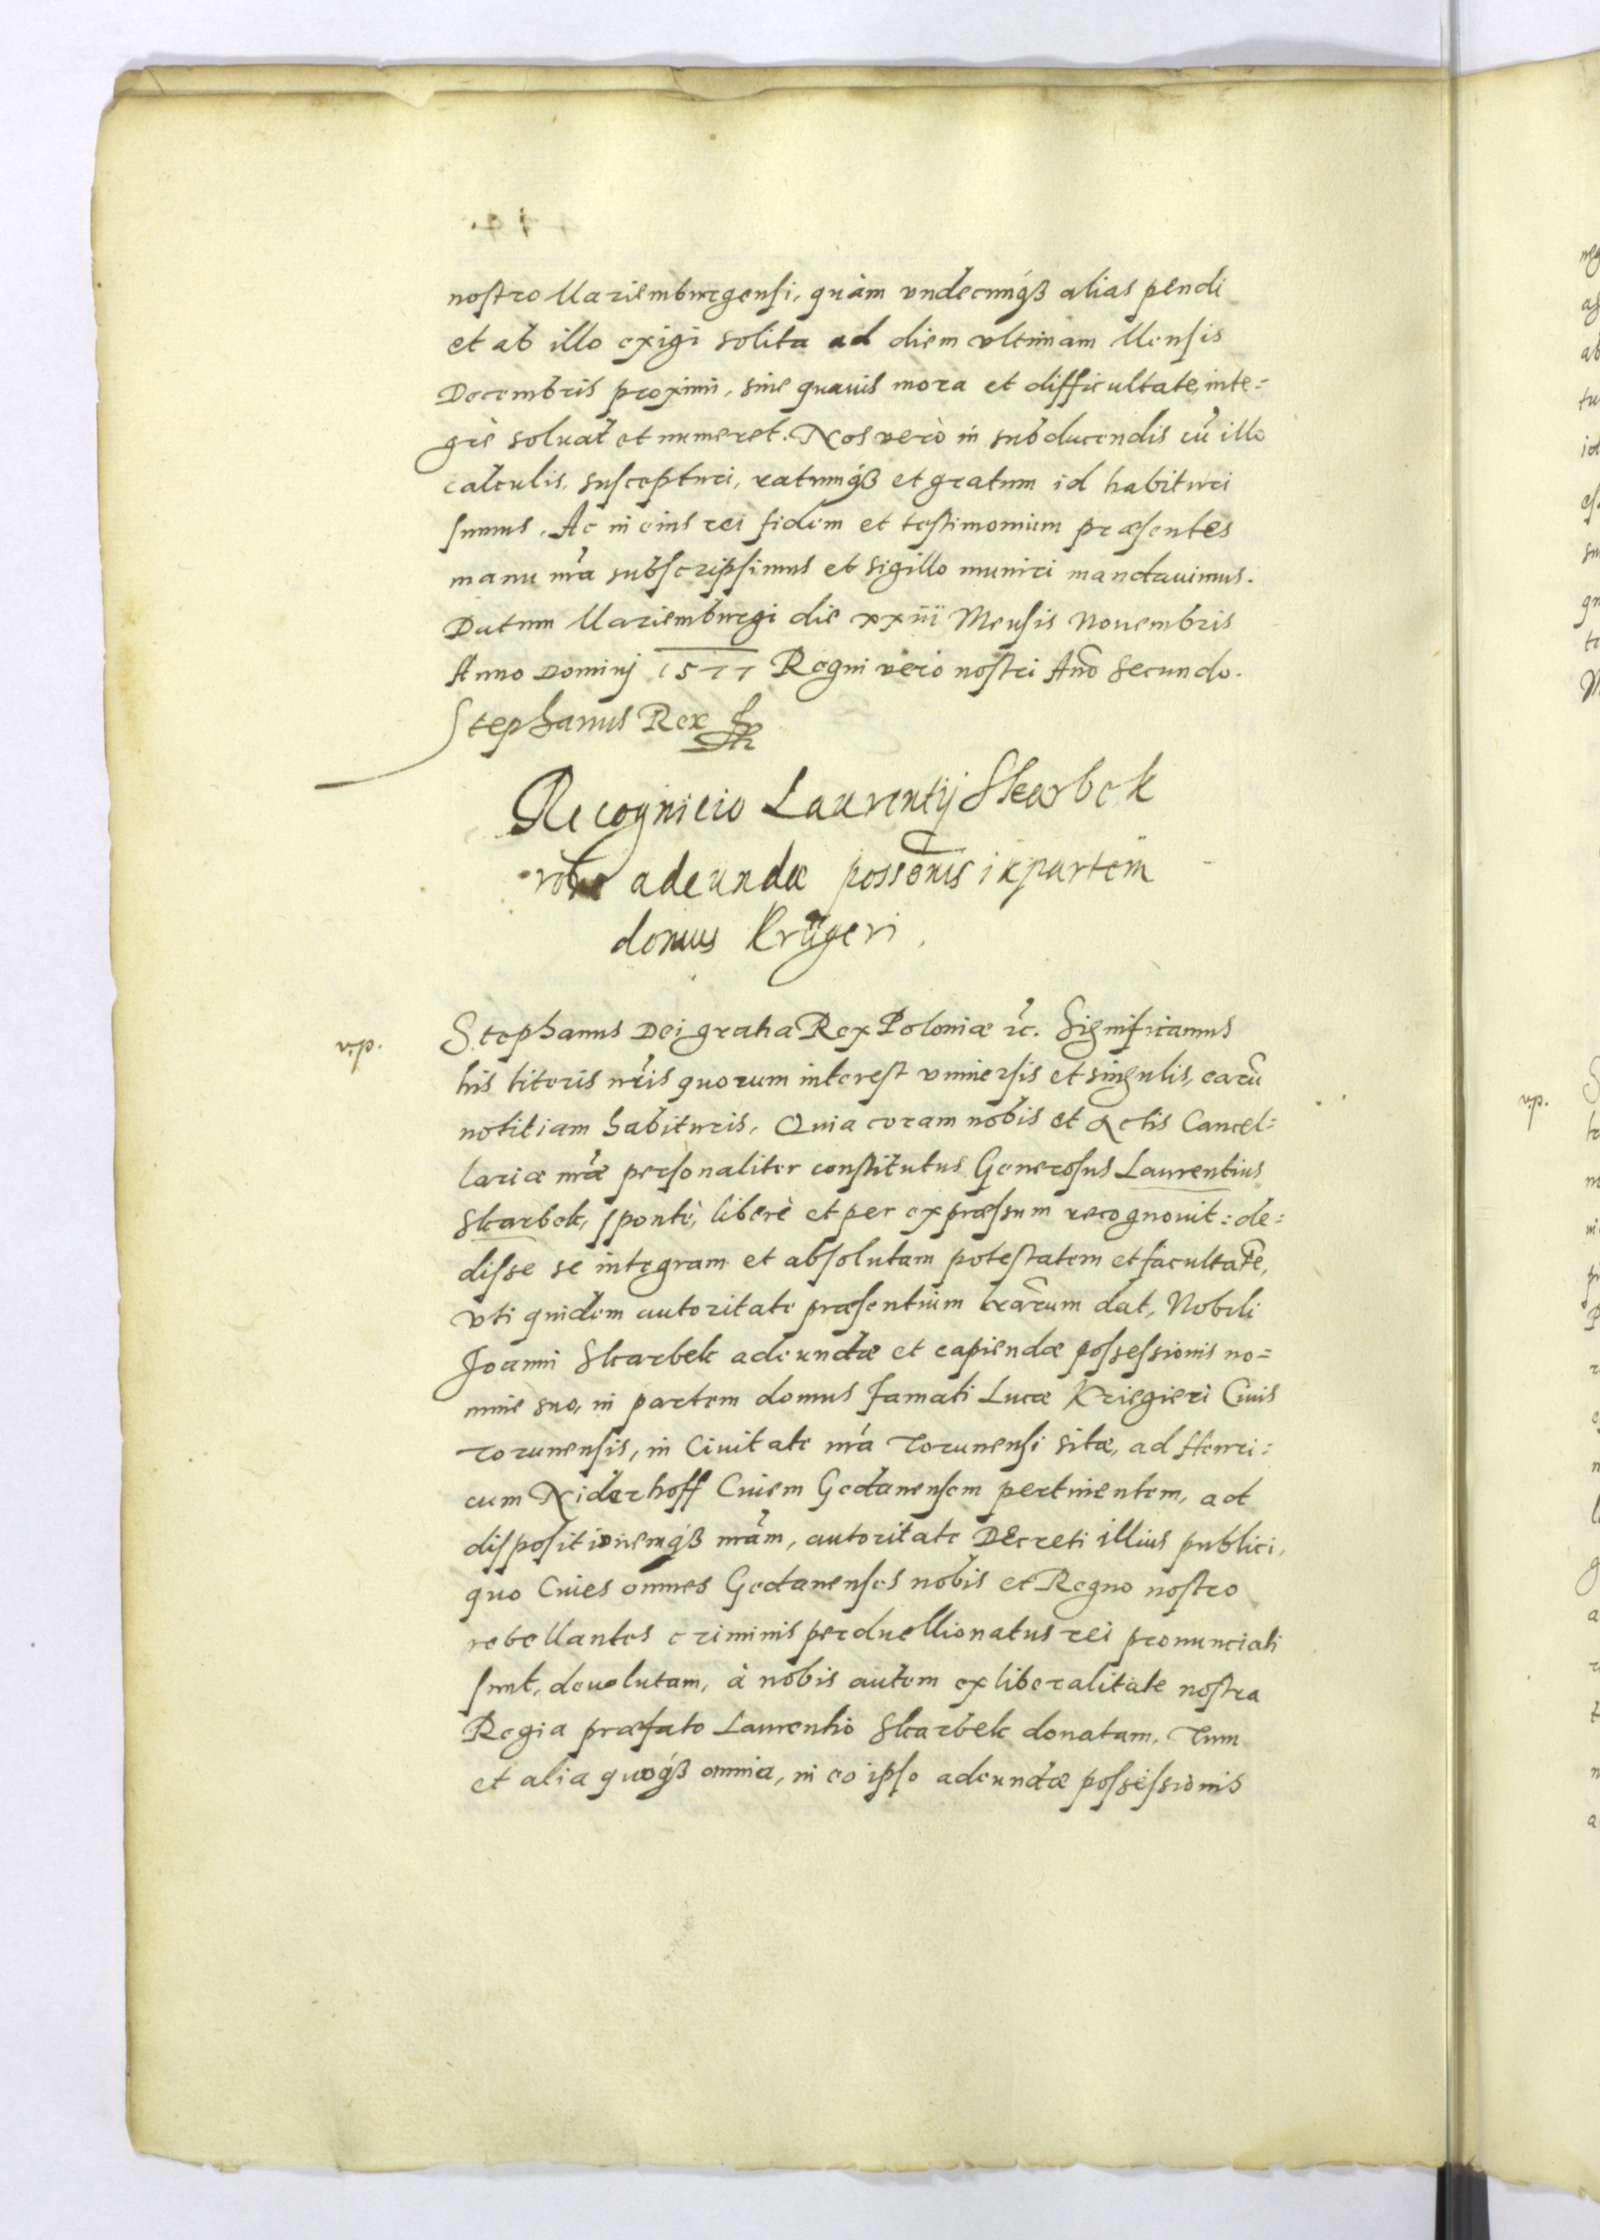 nostro Mariemburgensi, quàm vndecunq́ꝫ alias pendi
et ab illo exigi solita ad diem vltimam Mensis
Decembris proximi, sine quauis mora et difficultate, inte=
grè soluat et numeret. Nos verò in subducendis cũ illo
calculis, suscepturi, ratumq́ꝫ et gratum id habituri
sumus. Ac in eius rei fidem et testimonium præsentes
manu nr̃a subscripsimus et sigillo muniri mandauimus.
Datum Mariemburgi die xxiii Mensis Nouembris
Anno Dominj 1577 Regni vero nostri Año Secundo.
Stephanus Rex
Recognicio Laurentij Skarbek
adeundæ possōnis in partem
domus Krügeri.
v.p.
Stephanus Dei gratia Rex Poloniæ ꝛc. Significamus
his literis nr̃is quorum interest vniuersis et singulis, earũ
notitiam habituris, Quia coram nobis et Actis Cancel=
lariæ nr̃æ personaliter constitutus Generosus Laurentius
Skarbek, spontè, liberè et per expressum recognouit: de=
disse se integram et absolutam potestatem et facultatẽ,
vti quidem autoritate præsentium lr̃arum dat, Nobili
Joanni Skarbek adeundæ et capiendæ possessionis no=
mine suo, in partem domus famati Lucæ Kriegieri Ciuis
Torunensis, in Ciuitate nr̃a Torunensi sitæ, ad Henri=
cum Niderhoff Ciuem Gedanensem pertinentem, ad
dispositionemq́ꝫ nr̃am, autoritate Decreti illius publici,
quo Ciues omnes Gedanenses nobis et Regno nostro
rebellantes criminis perduellionatus rei pronunciati
sunt, deuolutam, à nobis autem ex liberalitate nostra
Regia præfato Laurentio Skarbek donatam, Tum
et alia quoq́ꝫ omnia, in eo ipso adeundæ possessionis
v.p.